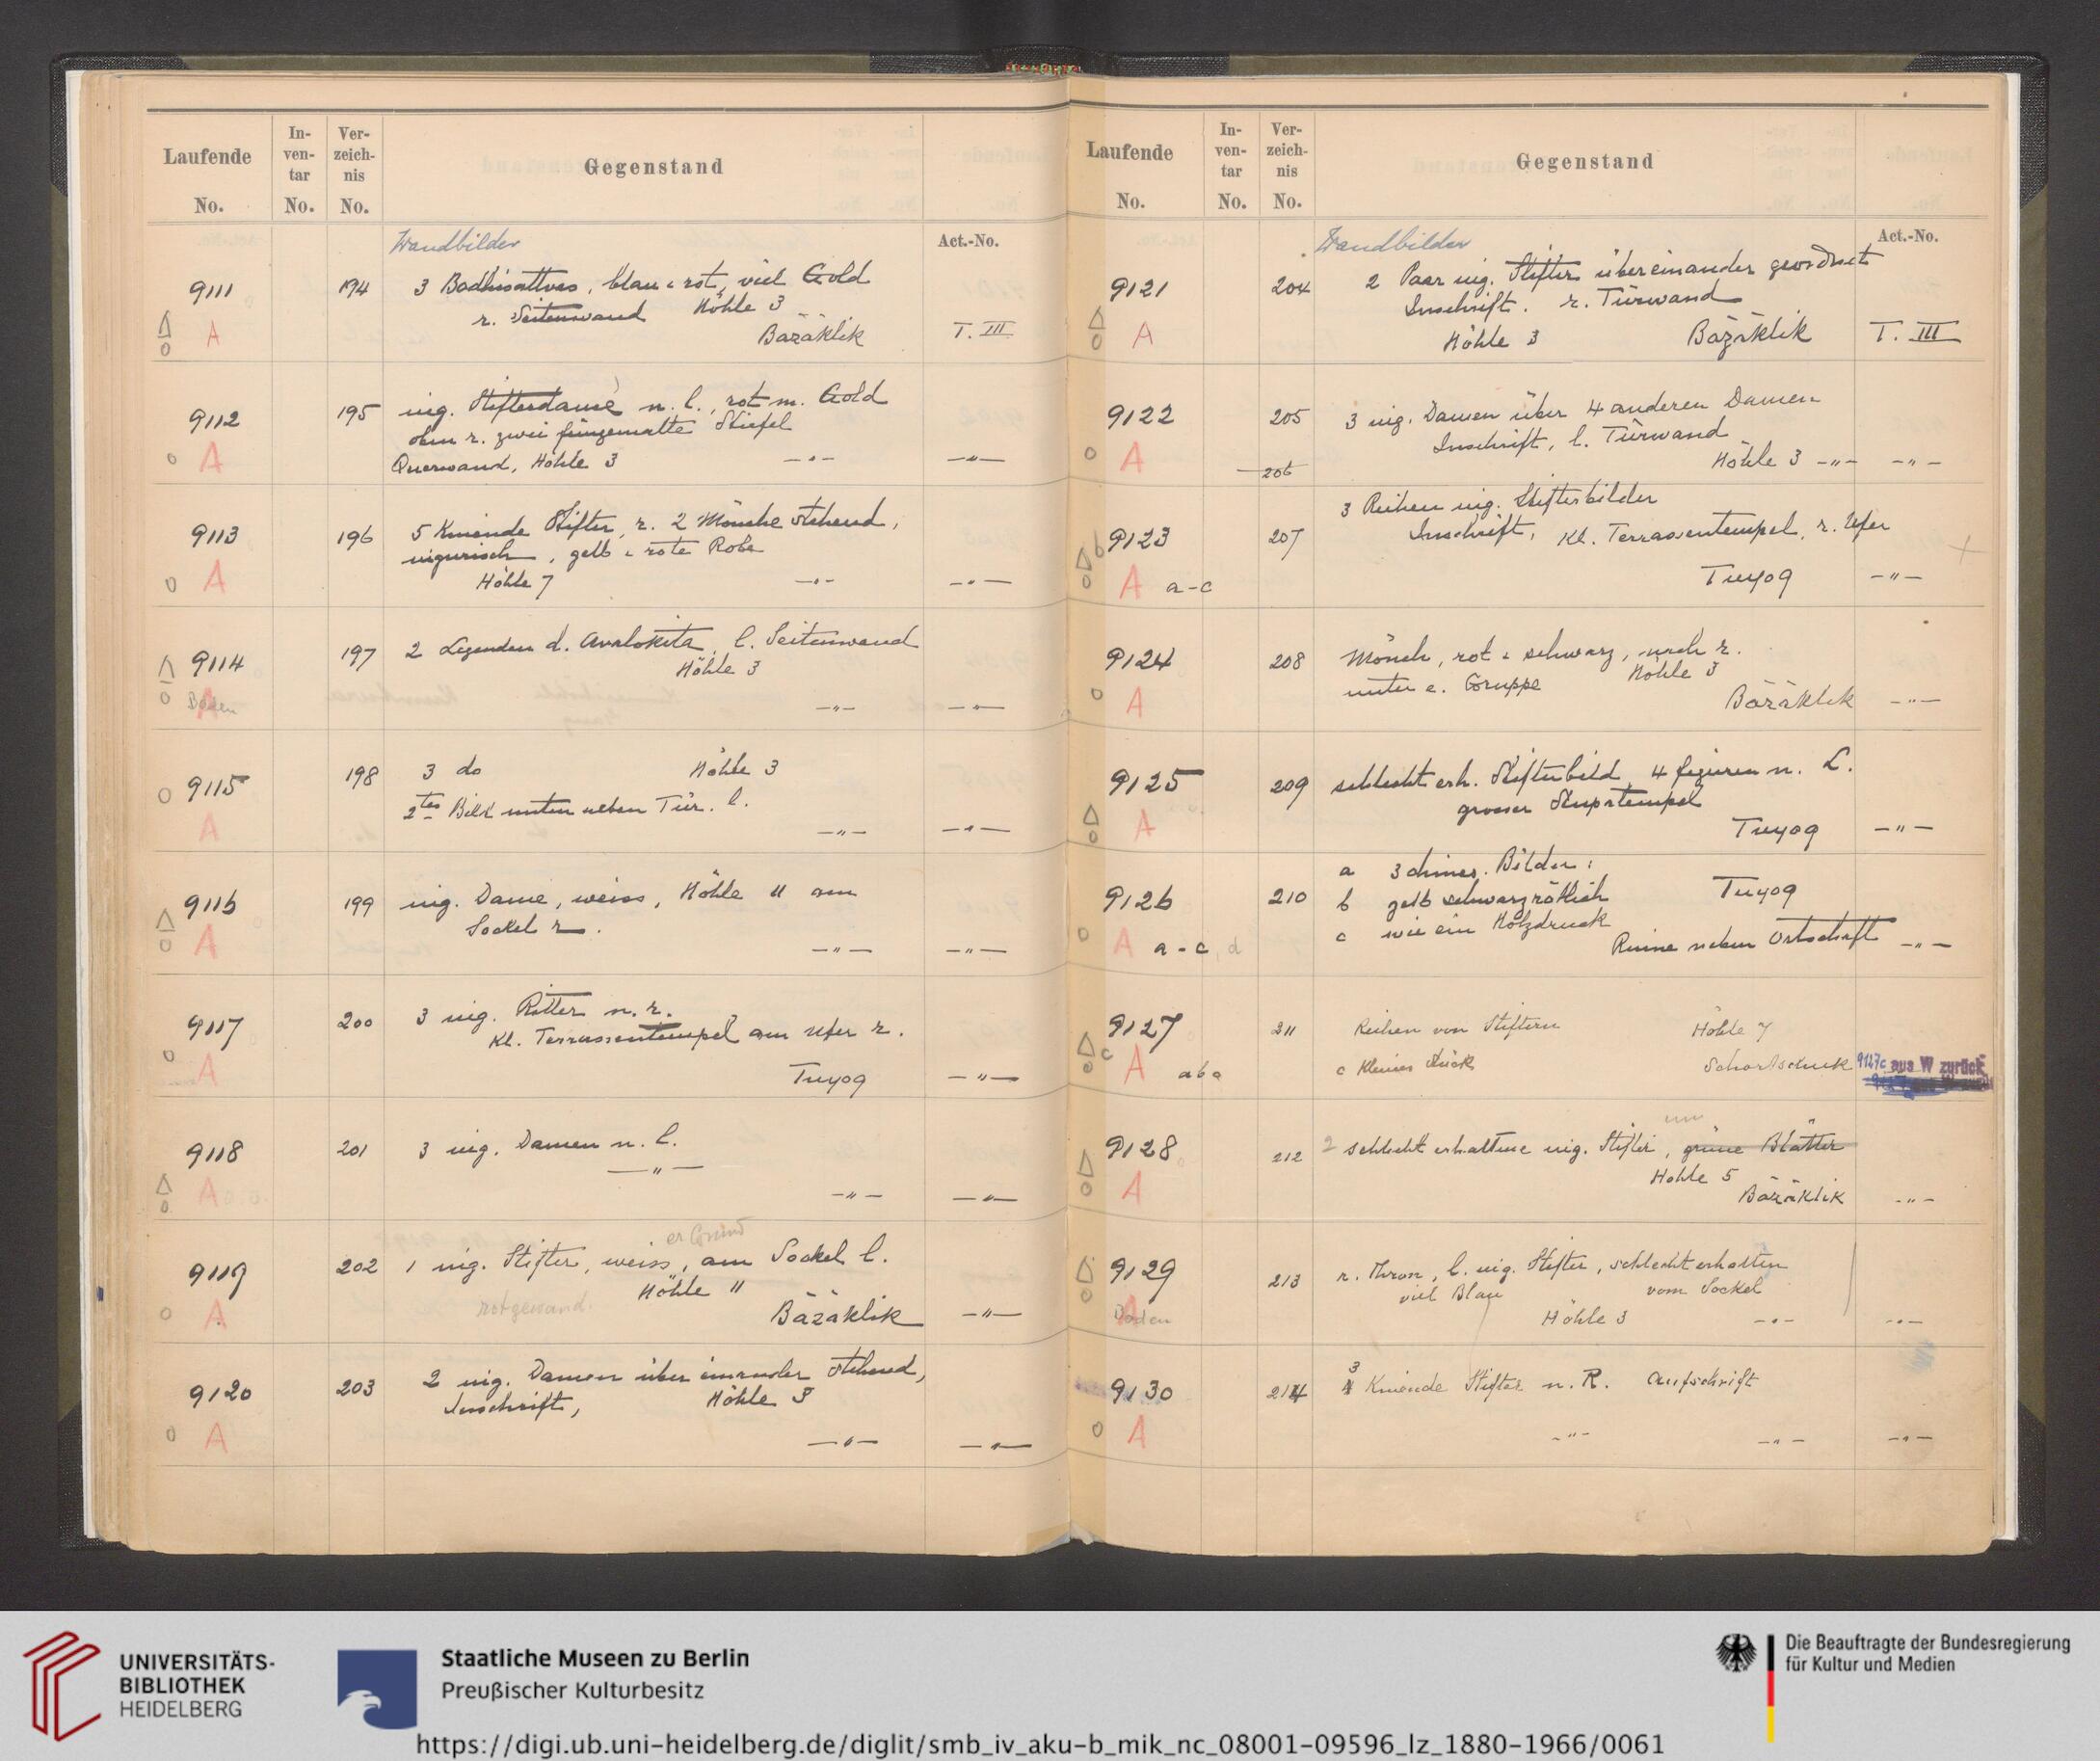 Laufende
No.
In-
ven-
tar
No.
Ver-
zeich-
nis
No.
Gegenstand
Wandbilder
Act.-No.
9111
194
3 Bodhisattvas, blau u rot, viel Gold
r. Seitenwand Höhle 3
A
Bäzäklik
T. III
9112
195
uig. Stifterdame n. l., rot m. Gold
oben r. zwei Stiefel
o A
Querwand, Höhle 3 —"— —"—
9113
196
5 Kniende Stifter, r. 2 Mönche stehend,
uigurisch, gelb u rote Robe
o A
Höhle 7 —"— —"—
9114
197
2 Legenden d. Avalokita, l. Seitenwand
Höhle 3
o Baden A
—"— —"—
9115
198
3 do Höhle 3
2tes Bild unten neben Tür. l.
A
—"— —"—
9116
199
uig. Dame, weiss, Höhle 4 am
Sockel r.
o A
—"— —"—
9117
200
3 uig. Ritter n. r.
Kl. Terrassentempel am Ufer r.
o A
Tuyoq —"—
9118
201
3 uig. Damen n. l.
—"—
o A
—"— —"—
9119
202
er Grund
1 uig. Stifter, weiss, am Sockel l.
Höhle "
rotgewand.
o A
Bäzäklik —"—
9120
203
2 uig. Damen über einander stehend,
Inschrift, Höhle 3
o A
—"— —"—
Laufende
No.
In-
ven-
tar
No.
Ver-
zeich-
nis
No.
Gegenstand
Wandbilder
Act.-No.
9121
204
2 Paar uig. Stifter übereinander geordnet
Inschrift. r. Türwand
o A
Höhle 3 Bäzäklik T. III
9122
205
3 uig. Damen über 4 anderen Damen
Inschrift, l. Türwand
o A
206
Höhle 3 —"— —"—
9123
207
3 Reihen uig. Stifterbilder
Inschrift, Kl. Terrassentempel, r. Ufer
b
o A a-c
Tuyoq —"—
9124
208
Mönch, rot u schwarz, nach r.
unter e. Gruppe Höhle 3
o A
Bäzäklik —"—
9125
209
schlecht erh. Stifterbild, 4 figuren n. L.
grosser Stupatempel
o A
Tuyoq —"—
9126
210
a 3 chines. Bilder:
b gelb schwarzrötlich Tuyoq
c wie ein Holzdruck
o A a-c, d
Ruine neben Ortschaft —"—
9127
211
Reihen von Stiftern Höhle 7
c A abc
c Kleines Stück Schortschuk
9127c aus W zurück
9128
212
um
2 schlecht erhaltene uig. Stifter, grüne Blätter
Höhle 5
o A
Bäzäklik —"—
9129
213
r. Thron, l. uig. Stifter, schlecht erhalten
viel Blau vom Sockel
o Baden A
Höhle 3 —"— —"—
9130
214
3
Kniende Stifter n. R. Aufschrift
o A
—"— —"— —"—
UNIVERSITÄTS-
BIBLIOTHEK
HEIDELBERG
Staatliche Museen zu Berlin
Preußischer Kulturbesitz
Die Beauftragte der Bundesregierung
für Kultur und Medien
https://digi.ub.uni-heidelberg.de/diglit/smb_iv_aku-b_mik_nc_08001-09596_lz_1880-1966/0061